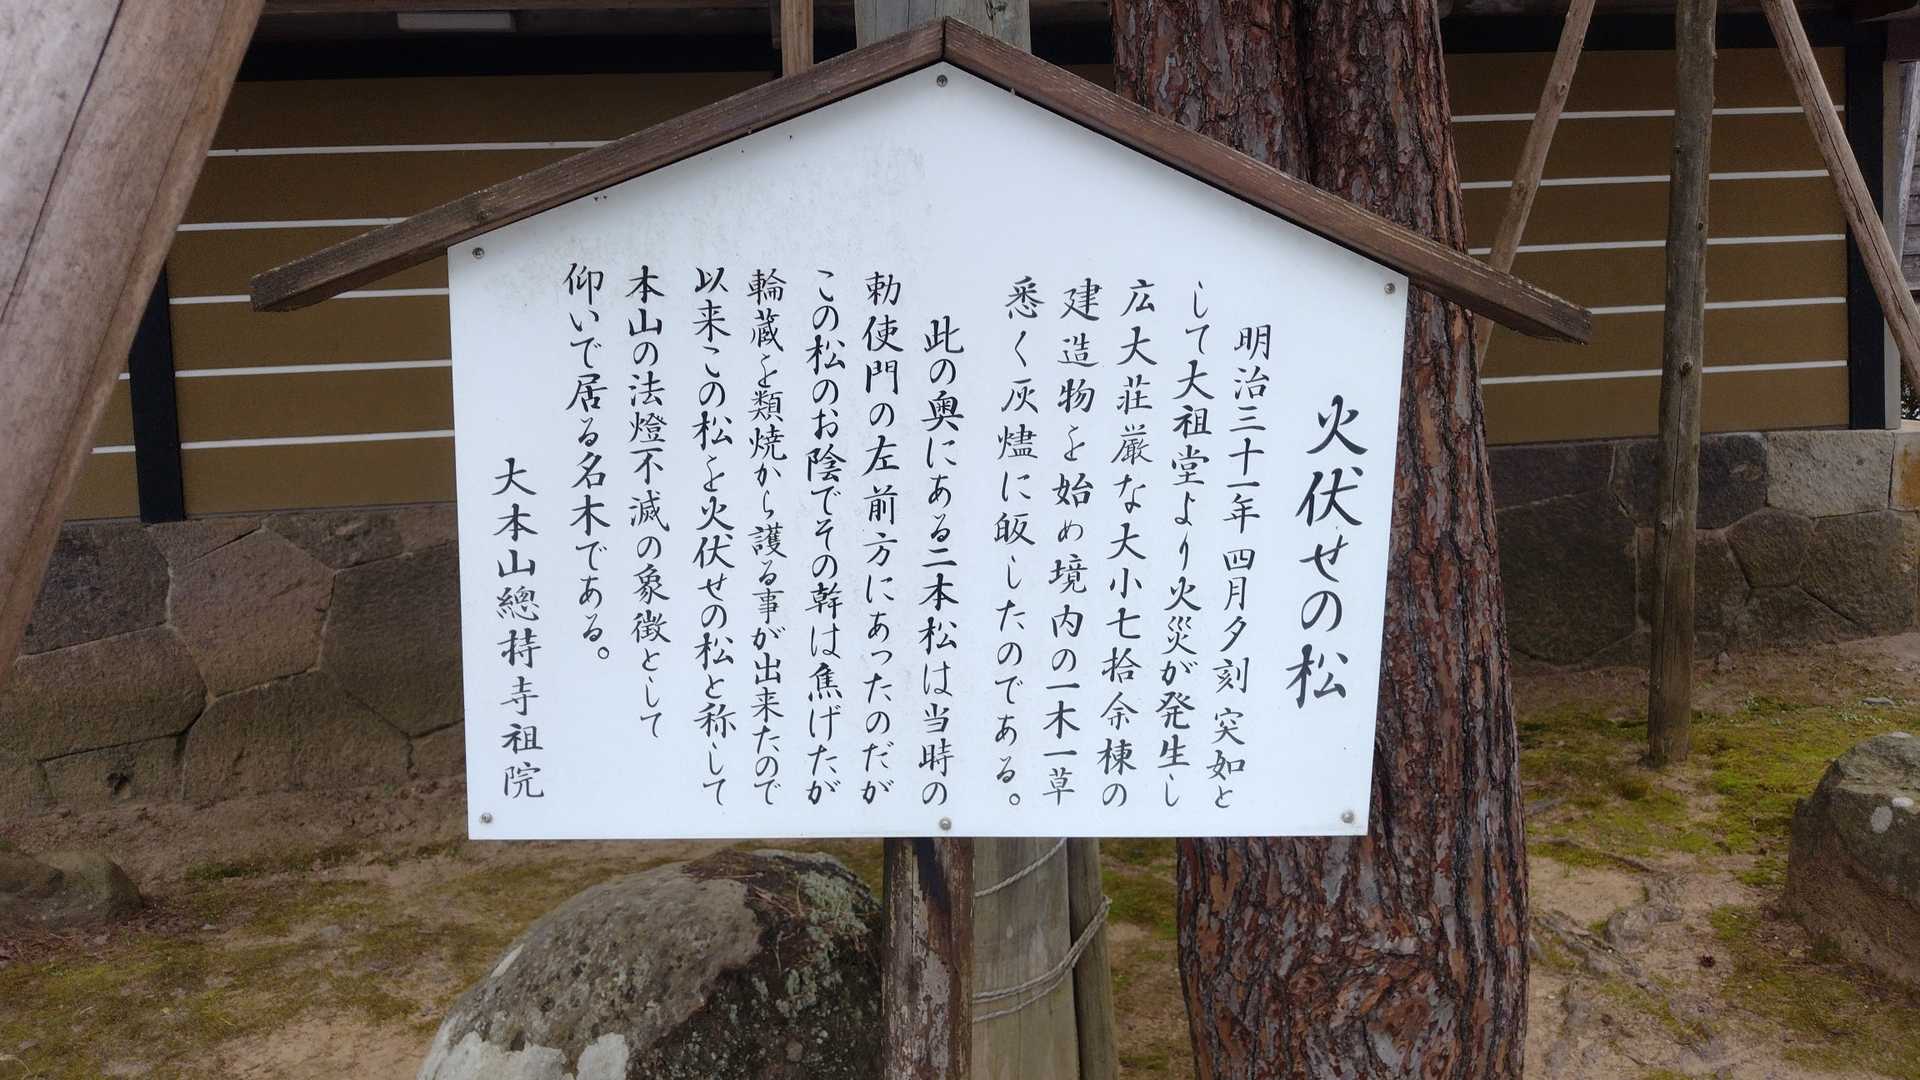 火伏せの松
明治三十一年四月夕刻突如と
して大祖堂より火災が発生し
広大荘厳な大小七拾余棟の
建造物を始め境内の一木一草
悉く灰燼に皈したのである。
此の奥にある二本松は当時の
勅使門の左前方にあったのだが
この松のお陰でその幹は焦げたが
輪蔵を類焼から護る事が出来たので
以来この松を火伏せの松と称して
本山の法燈不滅の象徴として
仰いで居る名木である。
大本山總持寺祖院